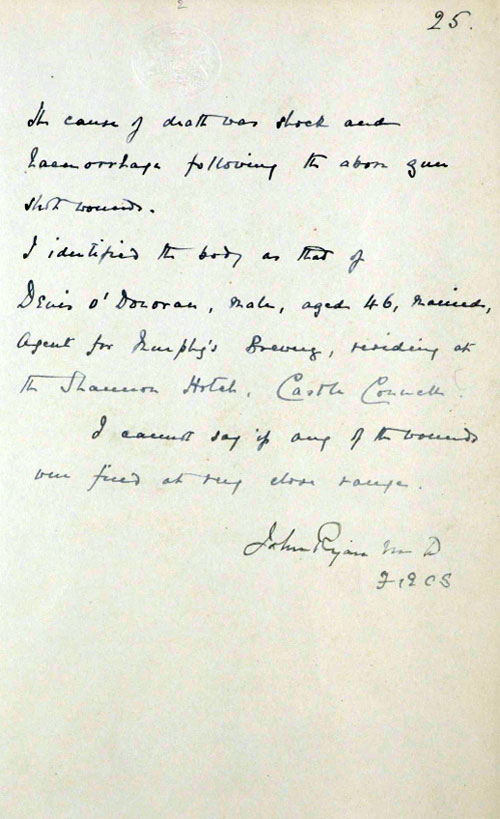 25.
The cause of death was shock and
haemorrhage following the above gun
shot wounds.
I identified the body as that of
Denis O'Donovan, male, aged 46, married,
Agent for Murphy's Brewery, residing at
the Shannon Hotel, Castle Connell.
I cannot say if any of the wounds
were fired at very close range.
John Ryan M D
F.R C S